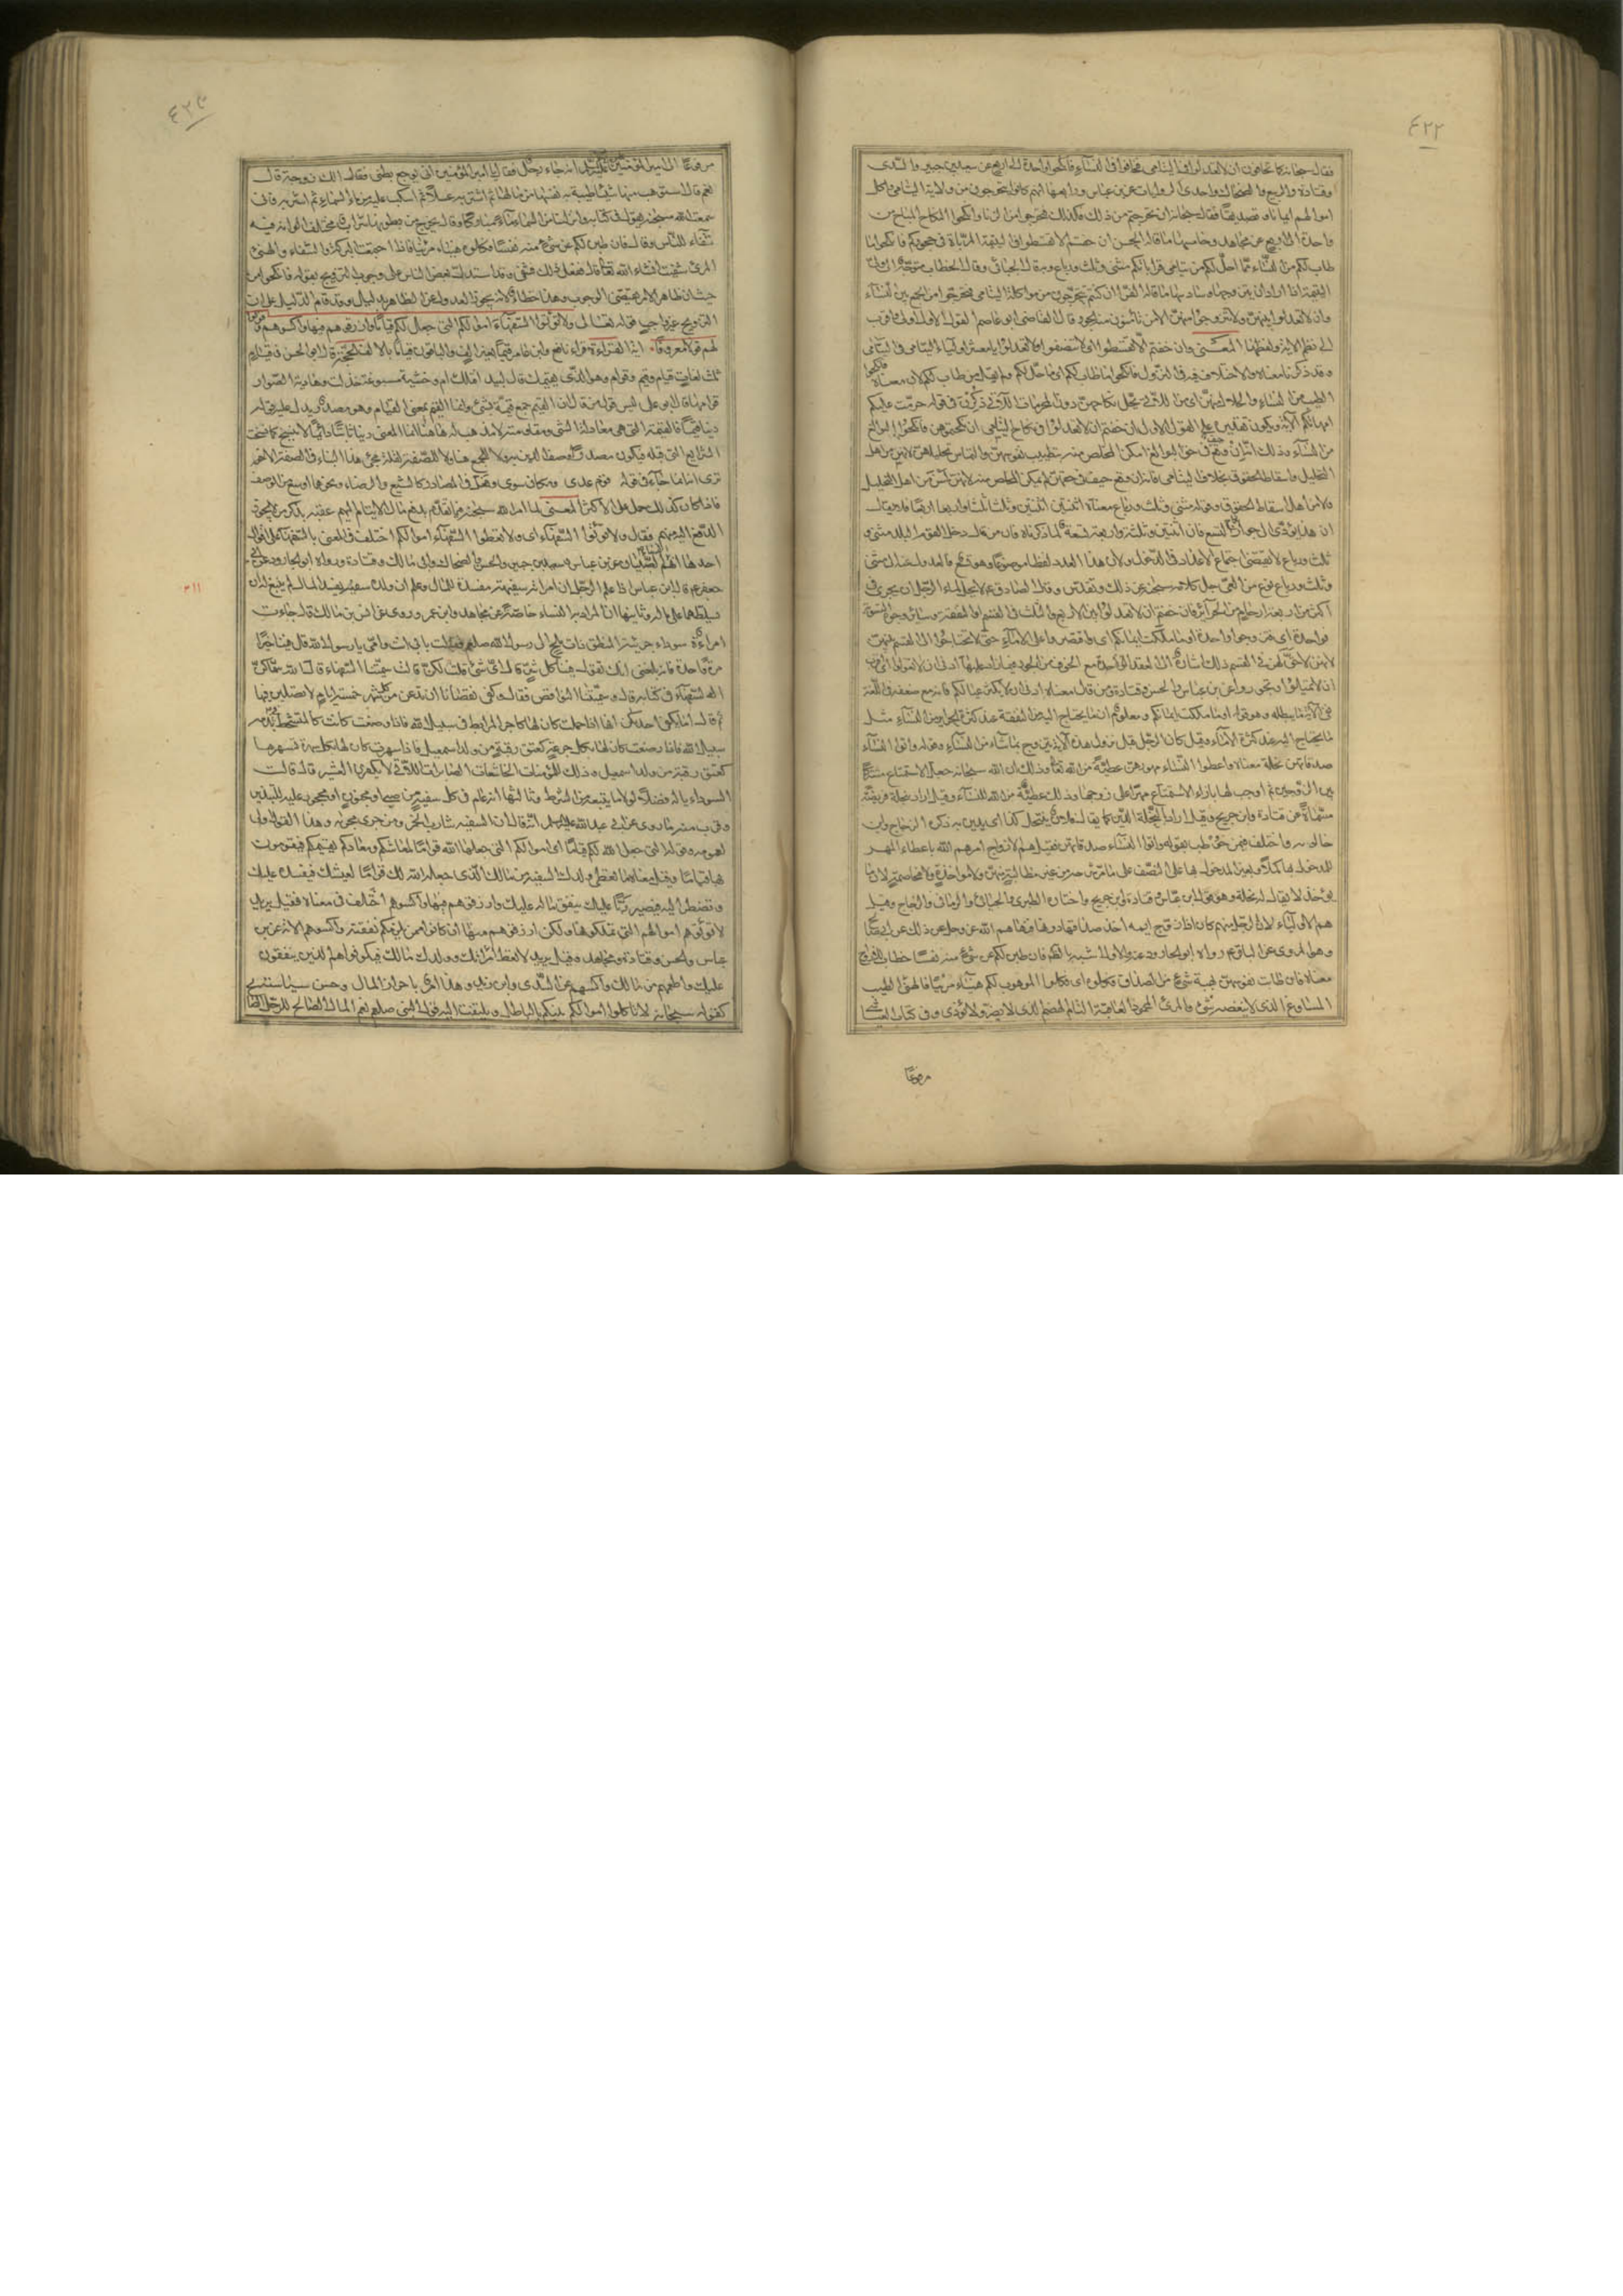 ٤٢٢
فقال سبحانه كما تخافون ان لا تعدلوا فى اليتامى فخافوا فى النساء فانكحوا واحدة الى الاربع عن سعيد بن جبير والسدى
وقتادة والربيع والضحاك واحدى الروايات عن ابن عباس ورابعها انهم كانوا يتحرجون من ولاية اليتامى واكل
اموالهم ايمانا وتصديقا فقال سبحانه ان تحرجتم من ذلك فكذلك تحرجوا من الزنا وانكحوا النكاح المباح من
واحدة الى اربع عن مجاهد وخامسها ما قاله الحسن ان خفتم الا تقسطوا فى اليتيمة المرباة فى حجوركم فانكحوا ما
طاب لكم من النساء مما احل لكم من يتامى قراباتكم مثنى وثلث ورباع وبه قال الجبائى وقال الخطاب متوجه الى ولى
اليتيمة اذا اراد ان يتزوجها وسادسها ما قاله الفراء ان كنتم تتحرجون من مواكلة اليتامى فتحرجوا من الجمع بين النساء
وان لا تعدلوا بينهن ولا تتزوجوا منهن الا من تأمنون معه الجور قال القاضى ابو عاصم القول الاول اولى واقرب
الى نظم الاية ولفظها المعنى وان خفتم الا تقسطوا اى لا تنصفوا ولا تعدلوا يا معشر اولياء اليتامى فى اليتامى
وقد ذكرنا معناه والاختلاف فيه فى النزول فانكحوا ما طاب لكم اى ما حل لكم ولم يقل من طاب لكم لان معناه فانكحوا
الطيب من النساء والحلال منهن اى من اللاتى يحل نكاحهن دون المحرمات اللاتى ذكرن فى قوله حرمت عليكم
امهاتكم الاية ويكون تقديره على القول الاول ان خفتم ان لا تعدلوا فى نكاح اليتامى ان نكحتموهن فانكحوا البوالغ
من النساء وذلك انه ان وقع حيف فى حق البوالغ امكن المخلص منه بتطييب نفوسهن والتماس تحليلهن لانهن من اهل
التحليل واسقاط الحقوق بخلاف اليتامى فانه ان وقع حيف فى حقهن لم يمكن المخلص منه لانهن لسن من اهل التحليل
ولا من اهل اسقاط الحقوق وقوله مثنى وثلث ورباع معناه اثنتين اثنتين وثلثا ثلثا واربعا اربعا فلا يقال
ان هذا يؤدى الى جواز التسع فان اثنتين وثلثة واربعة تسعة لما ذكرناه فان من قال دخل القوم البلد مثنى و
ثلث ورباع لا يقتضى اجتماع الاعداد فى الدخول ولان لهذا العدد لفظا موضوعا وهو تسع فالعدول عنه الى مثنى
وثلث ورباع نوع من العى جل كلامه سبحانه عن ذلك وتقدس وقال الصادق ع لا يحل لماء الرجل ان يجرى فى
اكثر من اربعة ارحام من الحرائر فان خفتم ان لا تعدلوا بين الاربع والثلث فى القسم او النفقة وسائر وجوه التسوية
فواحدة اى فتزوجوا واحدة او ما ملكت ايمانكم اى واقتصروا على الاماء حتى لا تحتاجوا الى القسم بينهن
لانهن لا حق لهن فى القسم ذلك اشارة الى العقد على الواحدة مع الخوف من الجور فيما زاد عليها ادنى ان لا تعولوا اى اقرب
ان لا تميلوا وتجوروا عن ابن عباس والحسن وقتادة ومن قال معناه ادنى ان لا يكثر عيالكم فانه مع ضعفه فى اللغة
فى الاية ما يبطله وهو قوله او ما ملكت ايمانكم ومعلوم ان ما يحتاج اليه من النفقة عند كثرة الحرائر من النساء مثل
ما يحتاج اليه عند كثرة الاماء وقيل كان الرجل قبل نزول هذه الاية يتزوج بما شاء من النساء وقوله واتوا النساء
صدقاتهن نحلة معناه واعطوا النساء مهورهن عطية من الله تعالى وذلك ان الله سبحانه جعل الاستمتاع مشتركا
بين الزوجين ثم اوجب لها بازاء الاستمتاع مهرا على زوجها وذلك عطية من الله للنساء وقيل اراد بنحلة فريضة
مسماة عن قتادة وابن جريج وقيل اراد بالنحلة الدين كما يقال فلان ينتحل كذا اى يدين به ذكره الزجاج وابن
خالويه واختلف فيمن خوطب بقوله واتوا النساء صدقاتهن فقيل هم الازواج امرهم الله باعطاء المهر
للمدخول بها كملا ولغير المدخول بها على النصف على ما مر شرحه من غير مطالبة منهن ولا مخاصمة لان ما
يؤخذ لا يقال له نحلة وهو قول ابن عباس وقتادة وابن جريج واختاره الطبرى والجبائى والرمانى والزجاج وقيل
هم الاولياء لان الرجل منهم كان اذا زوج ايمة اخذ صداقها دونها فنهاهم الله عز وجل عن ذلك عن ابى صالح
وهو المروى عن الباقر ع رواه ابو الجارود عنه والاول اشبه بالظاهر فان طبن لكم عن شىء منه نفسا خطاب للازواج
معناه فان طابت نفوسهن بهبة شىء من الصداق فكلوه اى فكلوا الموهوب لكم هنيئا مريئا فالهنىء الطيب
المساغ الذى لا ينغصه شىء والمرىء المحمود العاقبة التام الهضم الذى لا يضر ولا يؤذى وفى كتاب العياشى
مرفوعا
٤٢٣
مرفوعا الى امير المؤمنين على ع انه جاءه رجل فقال يا امير المؤمنين انى يوجع بطنى فقال الك زوجة قال
نعم قال استوهب منها شيئا طيبة به نفسها من مالها ثم اشتر به عسلا ثم اسكب عليه من ماء السماء ثم اشربه فانى
سمعت الله سبحانه يقول فى كتابه وانزلنا من السماء ماء مباركا وقال يخرج من بطونها شراب مختلف الوانه فيه
شفاء للناس وقال فان طبن لكم عن شىء منه نفسا فكلوه هنيئا مريئا فاذا اجتمعت البركة والشفاء والهنىء
المرىء شفيت انشاء الله تعالى قال ففعل ذلك فشفى وقد استدل بعض الناس على وجوب التزويج بقوله فانكحوا من
حيث ان ظاهر الامر يقتضى الوجوب وهذا خطأ لانه يجوز العدول عن الظاهر بدليل وقد قام الدليل على ان
التزويج غير واجب قوله تعالى ولا تؤتوا السفهاء اموالكم التى جعل الله لكم قياما وارزقوهم فيها واكسوهم وقولوا
لهم قولا معروفا اية القراءة قراء نافع وابن عامر قيما بغير الف والباقون قياما بالالف الحجة قال ابو الحسن فى قيام
ثلث لغات قيام وقيم وقوام وهو الذى يقيمك قال لبيد افتلك ام وحشية مسبوعة خذلت وهادية الصوار
قوامها قال ابو على ليس قول من قال ان القيم جمع قيمة بشىء وانما القيم بمعنى القيام وهو مصدر يدل عليه قوله
دينا قيما فالقيمة التى هى معادلة الشىء ومقاومته لا مذهب له هاهنا انما المعنى دينا ثابتا دائما لا ينسخ كما نسخت
الشرايع التى قبله فيكون مصدرا وصف الدين به ولا وجه للجمع هنا ولا للصفة لقلة مجىء هذا البناء فى الصفة الا
ترى انه انما جاء فى قولهم قوم عدى ومكان سوى وفعل فى المصادر كالشبع والرضا ونحوهما اوسع من الوصف
فاذا كان كذلك حمل على الاكثر المعنى لما امر الله سبحانه فيما تقدم بدفع مال الايتام اليهم عقبه بذكر من لا يجوز
الدفع اليه منهم فقال ولا تؤتوا السفهاء اى ولا تعطوا السفهاء اموالكم اختلف فى المعنى بالسفهاء على اقوال
احدها انهم النساء والصبيان عن ابن عباس وسعيد بن جبير والحسن والضحاك وابى مالك وقتادة ورواه ابو الجارود عن ابى
جعفر ع قال ابن عباس اذا علم الرجل ان امراته سفيهة مفسدة للمال وعلم ان ولده سفيه يفسد المال لم ينبغ له ان
يسلطهما على ماله وثانيها ان المراد به النساء خاصة عن مجاهد وابن عمر وروى عن انس بن مالك قال جاءت
امراءة سوداء جريئة المنطق ذات ملح الى رسول الله صلعم فقالت بابى انت وامى يا رسول الله قل فينا خيرا
مرة واحدة فانه بلغنى انك تقول فينا كل شر قال اى شىء قلت لكن قالت سميتنا السفهاء قال الله سماكن
السفهاء فى كتابه قالت وسميتنا النواقص فقال وكفى نقصانا ان تدعن من كل شهر خمسة ايام لا تصلين فيها
ثم قال اما يكفى احداكن انها اذا حملت كان لها كاجر المرابط فى سبيل الله فاذا وضعت كانت كالمتشحط بدمه فى
سبيل الله فاذا ارضعت كان لها بكل جرعة كعتق رقبة من ولد اسمعيل فاذا سهرت كان لها بكل سهرة تسهرها
كعتق رقبة من ولد اسمعيل وذلك للمؤمنات الخاشعات الصابرات اللاتى لا يكفرن العشير قال قالت
السوداء يا له فضلا لولا ما يتبعه من الشرط وثالثها انه عام فى كل سفيه من صبى او مجنون او محجور عليه للتبذير
وقريب منه ما روى عن ابى عبد الله عليه السلم انه قال ان السفيه شارب الخمر ومن جرى مجراه وهذا القول اولى
لعمومه قوله التى جعل الله لكم قياما اى اموالكم التى جعلها الله قواما لمعاشكم ومعادكم يقيمكم فيقومون
بها قياما وقيل معناه لا تعط ولدك السفيه من مالك الذى جعله الله لك قواما لعيشك فيفسده عليك
وتضطر اليه فيصير ربا عليك ينفق ماله عليك وارزقوهم فيها واكسوهم اختلف فى معناه فقيل يريد
لا تؤتوهم اموالهم التى تملكوها ولكن ارزقوهم منها ان كانوا ممن يلزمكم نفقته واكسوهم الاية عن ابن
عباس والحسن وقتادة ومجاهد وقيل يريد لا تعط امراتك وولدك مالك فيكونوا هم الذين ينفقون
عليك واطعمهم من مالك واكسهم عن السدى وابن زيد وهذا امر باحراز المال وحسن سياسته
كقوله سبحانه لا تاكلوا اموالكم بينكم بالباطل ويلتفت اليه قول النبى صلعم نعم المال الصالح للرجل الصالح